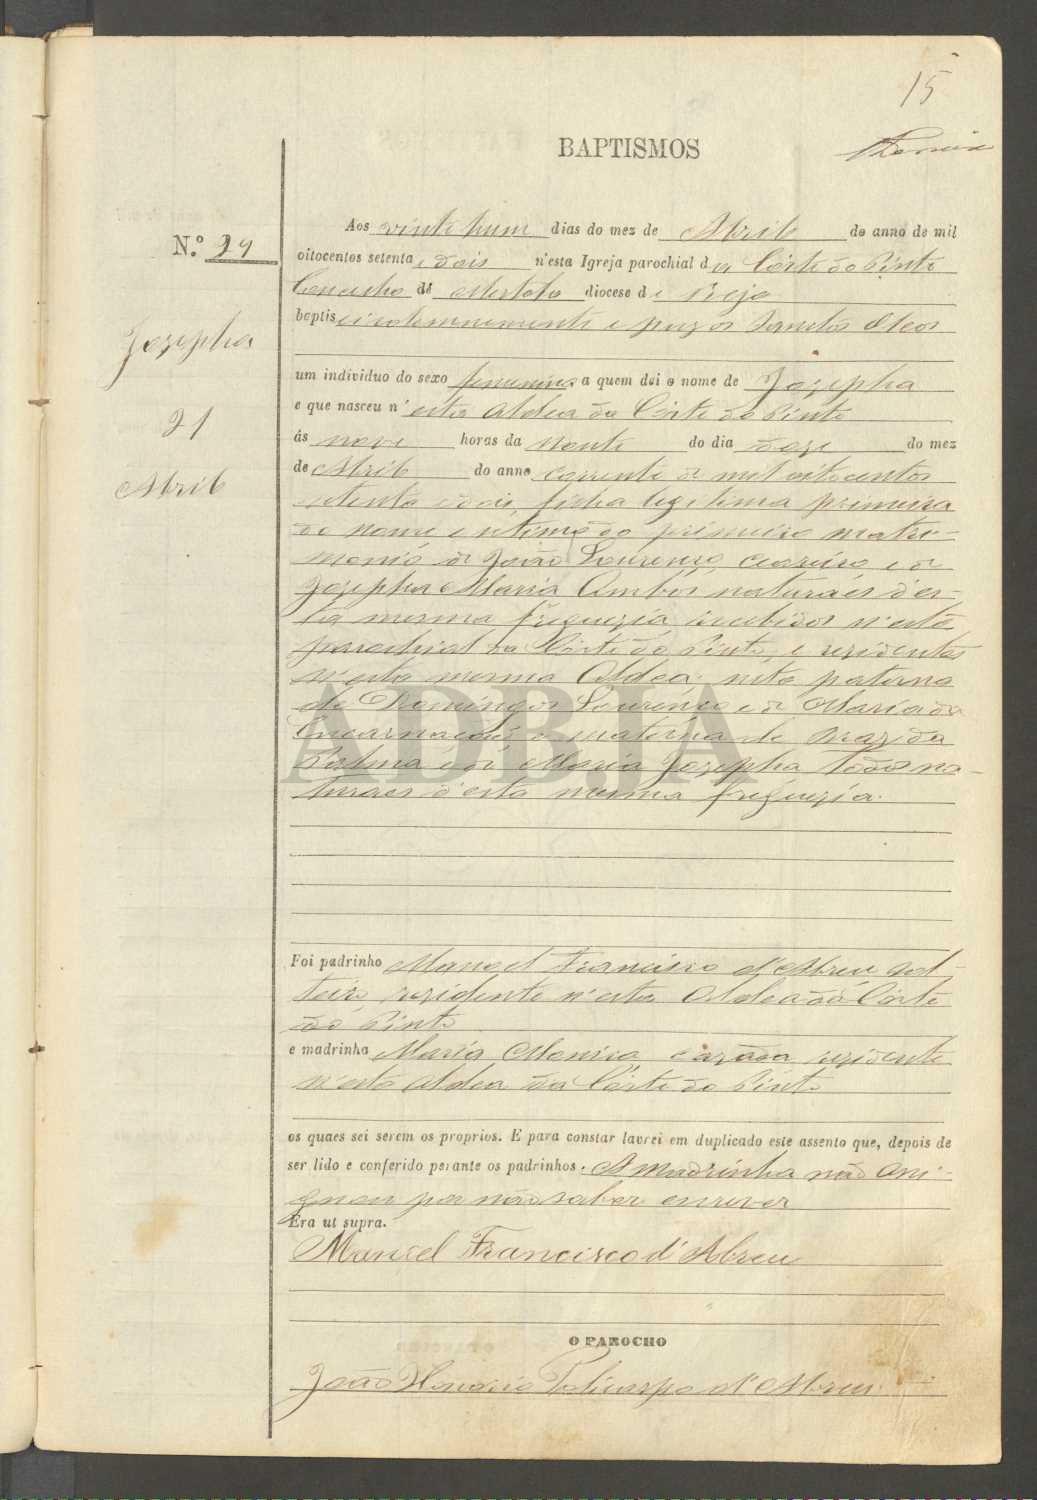 15
BAPTISMOS
N.º 29
Jozepha
21
Abril
Aos vinte hum dias do mez de Abril do anno de mil
oitocentos setenta e dois n'esta Igreja parochial da Côrte do Pinto
Concelho de Mertola diocese de Beja
baptisei solemnemente e puz os Sanctos Oleos
um individuo do sexo femenino a quem dei o nome de Jozepha
e que nasceu n'esta Aldea da Côrte do Pinto
ás nove horas da noute do dia doze do mez
de Abril do anno corrente de mil oitocentos
setenta e dois, filha legitima primeira
do nome e setima do primeiro matri-
monio de João Lourenço, e de
Jozepha Maria Ambos naturaes d'es-
ta mesma freguezia recebidos n'esta
parochial da Côrte do Pinto, e rezidentes
n'esta mesma Aldea: neta paterna
de Domingos Lourenço e de Maria da
Encarnação e materna de Braz da
Palma e de Maria Jozepha todos na-
turaes d'esta mesma freguezia.
Foi padrinho Manoel Francisco d'Abreu sol-
teiro rezidente n'esta Aldea da Côrte
do Pinto
e madrinha Maria Monica cazada rezidente
n'esta Aldea da Côrte do Pinto
os quaes sei serem os proprios. E para constar lavrei em duplicado este assento que, depois de
ser lido e conferido perante os padrinhos. A madrinha não assi-
gnou por não saber escrever
Era ut supra.
Manoel Francisco d'Abreu
O PAROCHO
João Honorio Policarpo d'Abreu
ADBJA